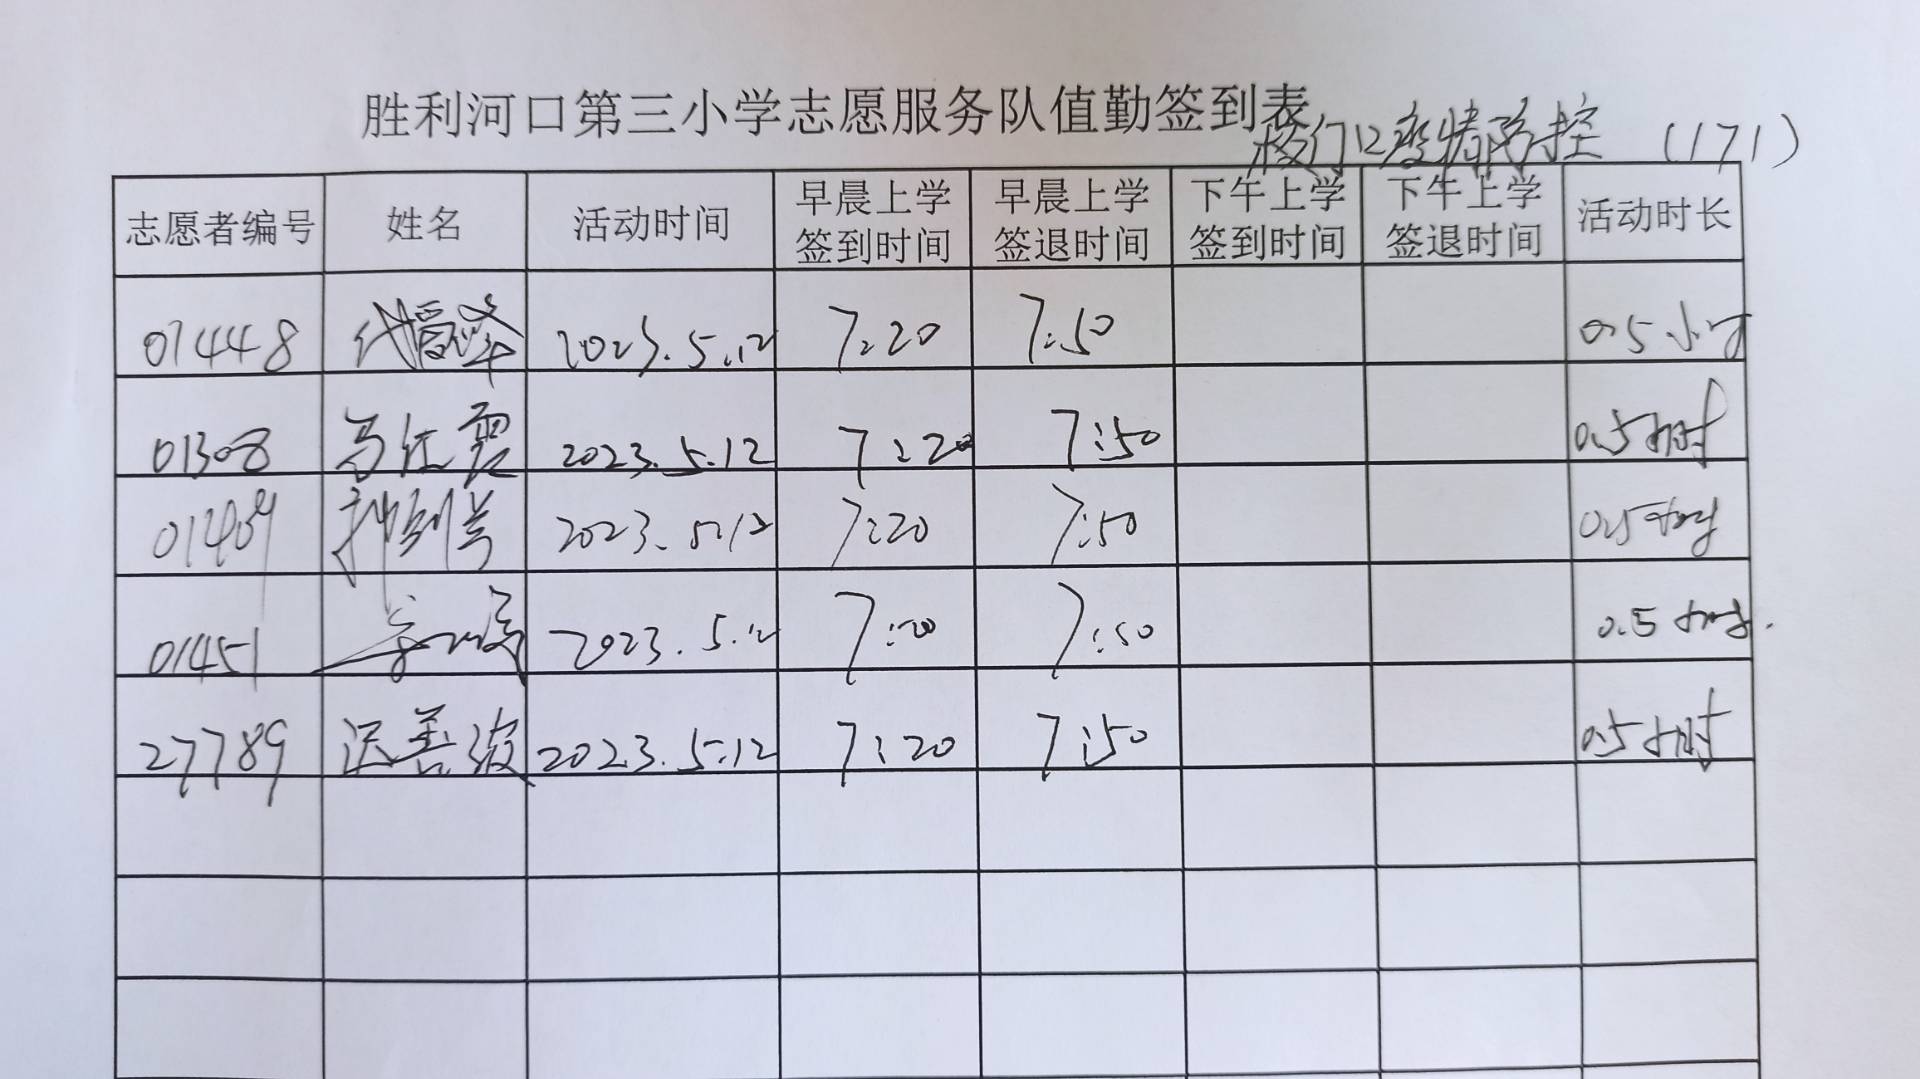 胜利河口第三小学志愿服务队值勤签到表
校门口疫情防控 (171)
志愿者编号 姓名 活动时间 早晨上学签到时间 早晨上学签退时间 下午上学签到时间 下午上学签退时间 活动时长
01448 代爱峰 2023.5.12 7:20 7:50 0.5小时
01308 马红霞 2023.5.12 7:20 7:50 0.5小时
01409 2023.5.12 7:20 7:50 0.5小时
01451 2023.5.12 7:20 7:50 0.5小时
27789 迟善波 2023.5.12 7:20 7:50 0.5小时